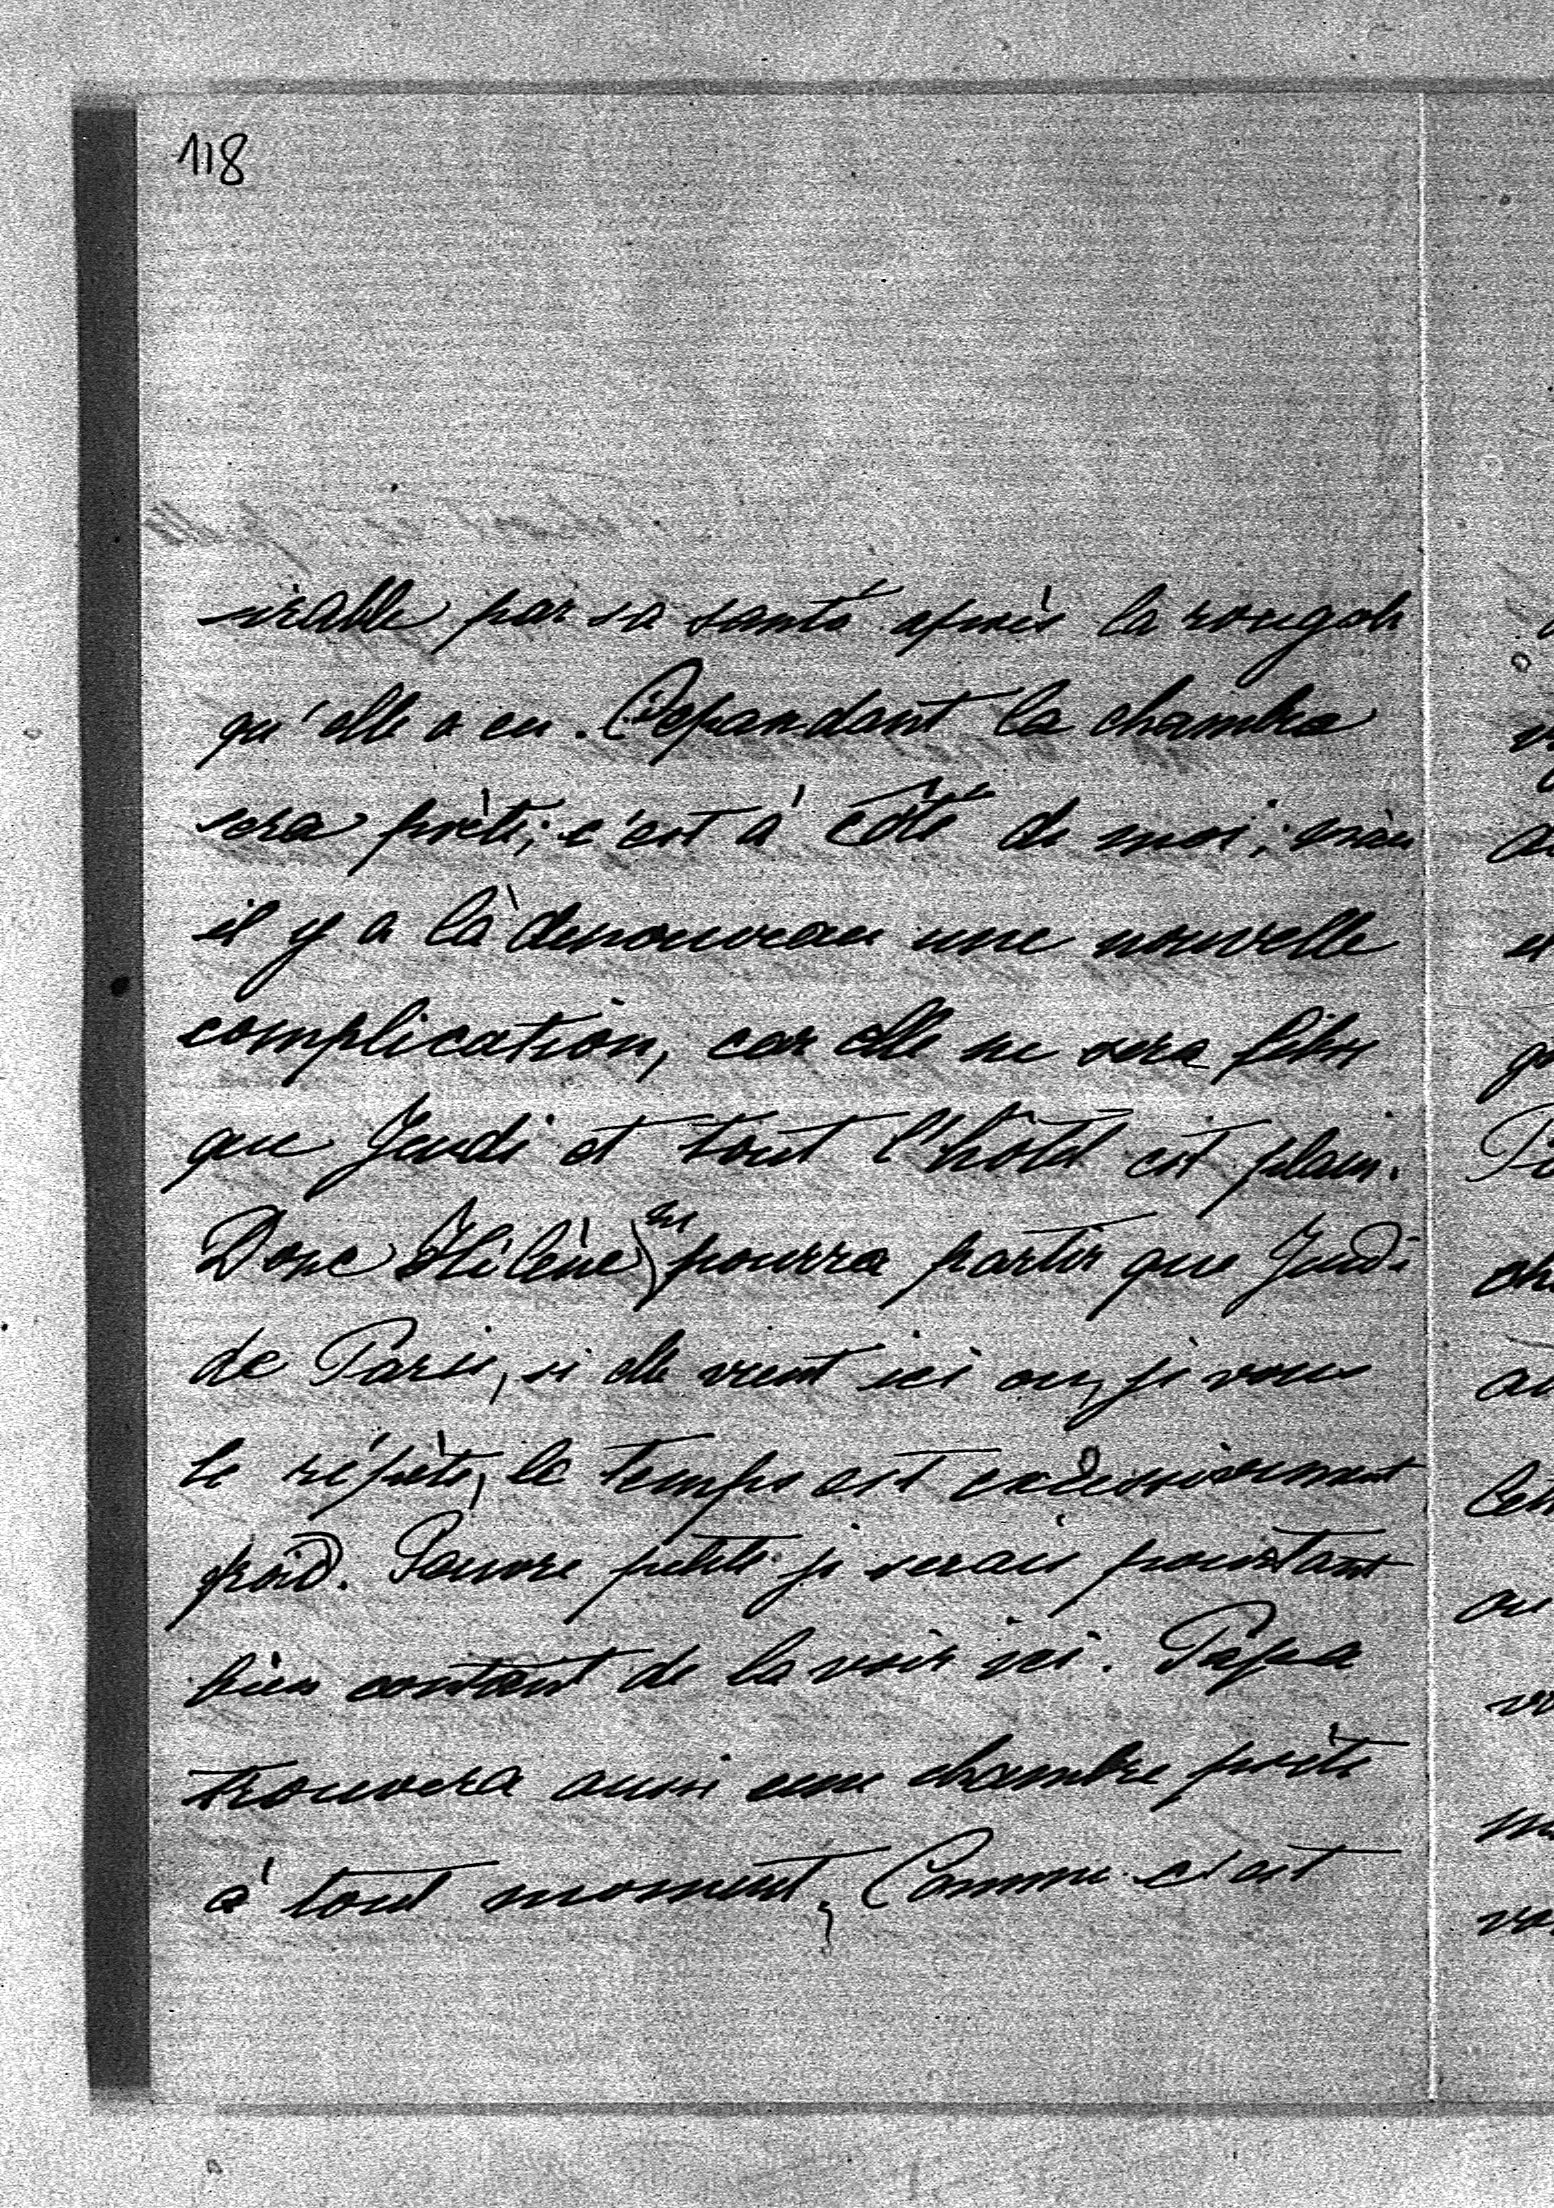 118
sirable par sa santé après la rougole
qu'elle a eu. Cepandant la chambre
sera prête; c'est à côté de moi; mais
il y a là denouveau une nouvelle
complication, car elle ne sera libre
que Jeudi et tout l'hôtel est plein.
Donc Hélène ne pourra partir que Jeudi
de Paris, si elle vient ici ou, je vous
le répète, le temps est excessivement
froid. Pauvre petite je serais pourtant
bien content de la voir ici. Papa
trouvera aussi une chambre prête
à tout moment, Comme c'est